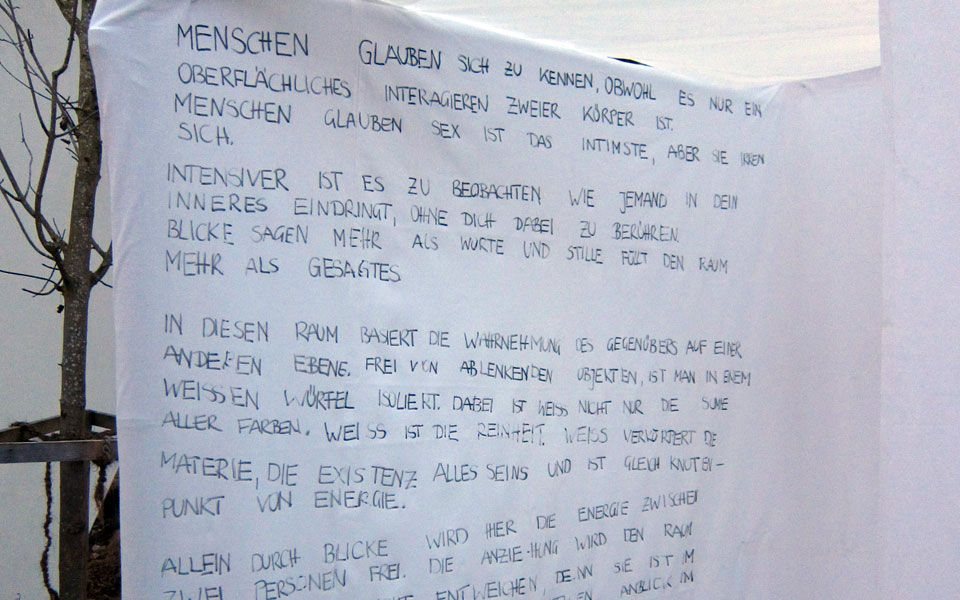 MENSCHEN GLAUBEN SICH ZU KENNEN, OBWOHL ES NUR EIN
OBERFLÄCHLICHES INTERAGIEREN ZWEIER KÖRPER IST.
MENSCHEN GLAUBEN SEX IST DAS INTIMSTE, ABER SIE IRREN
SICH.
INTENSIVER IST ES ZU BEOBACHTEN WIE JEMAND IN DEIN
INNERES EINDRINGT, OHNE DICH DABEI ZU BERÜHREN.
BLICKE SAGEN MEHR ALS WORTE UND STILLE FÜLLT DEN RAUM
MEHR ALS GESAGTES
IN DIESEN RAUM BASIERT DIE WAHRNEHMUNG DES GEGENÜBERS AUF EINER
ANDEREN EBENE. FREI VON ABLENKENDEN OBJEKTEN, IST MAN IN EINEM
WEISSEN WÜRFEL ISOLIERT. DABEI IST WEISS NICHT NUR DIE SUME
ALLER FARBEN. WEISS IST DIE REINHEIT. WEISS VERKÖRPERT DIE
MATERIE, DIE EXISTENZ ALLES SEINS UND IST GLEICH KNOTEN-
PUNKT VON ENERGIE.
ALLEIN DURCH BLICKE WIRD HIER DIE ENERGIE ZWISCHEN
ZWEI PERSONEN FREI. DIE ANZIEHUNG WIRD DEN RAUM
ENTWEICHEN, DENN SIE IST IM
ANBLICK IM